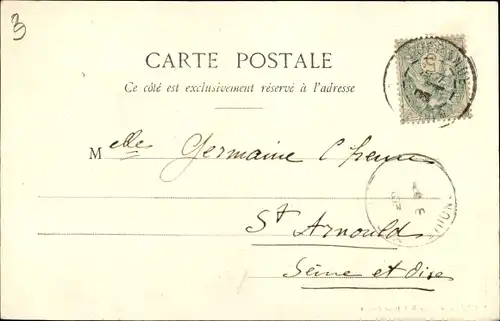 3
CARTE POSTALE
Ce côté est exclusivement réservé à l'adresse
Melle Germaine
St Arnould
Seine et Oise